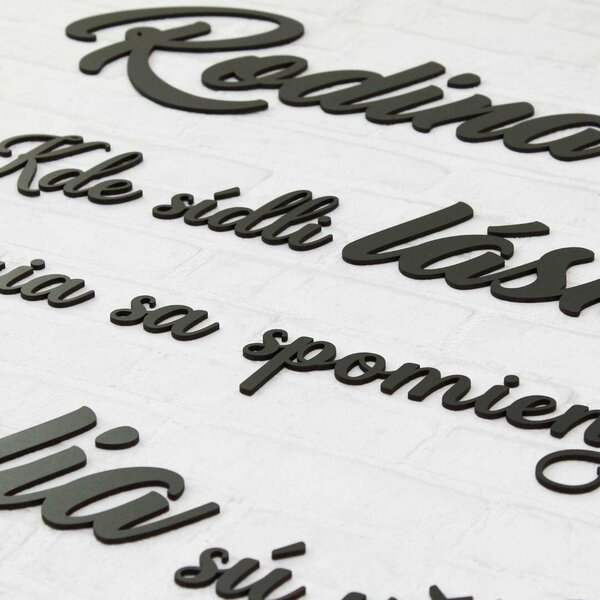 Rodina
Kde sídli lás
nia sa spomien
lia
sú